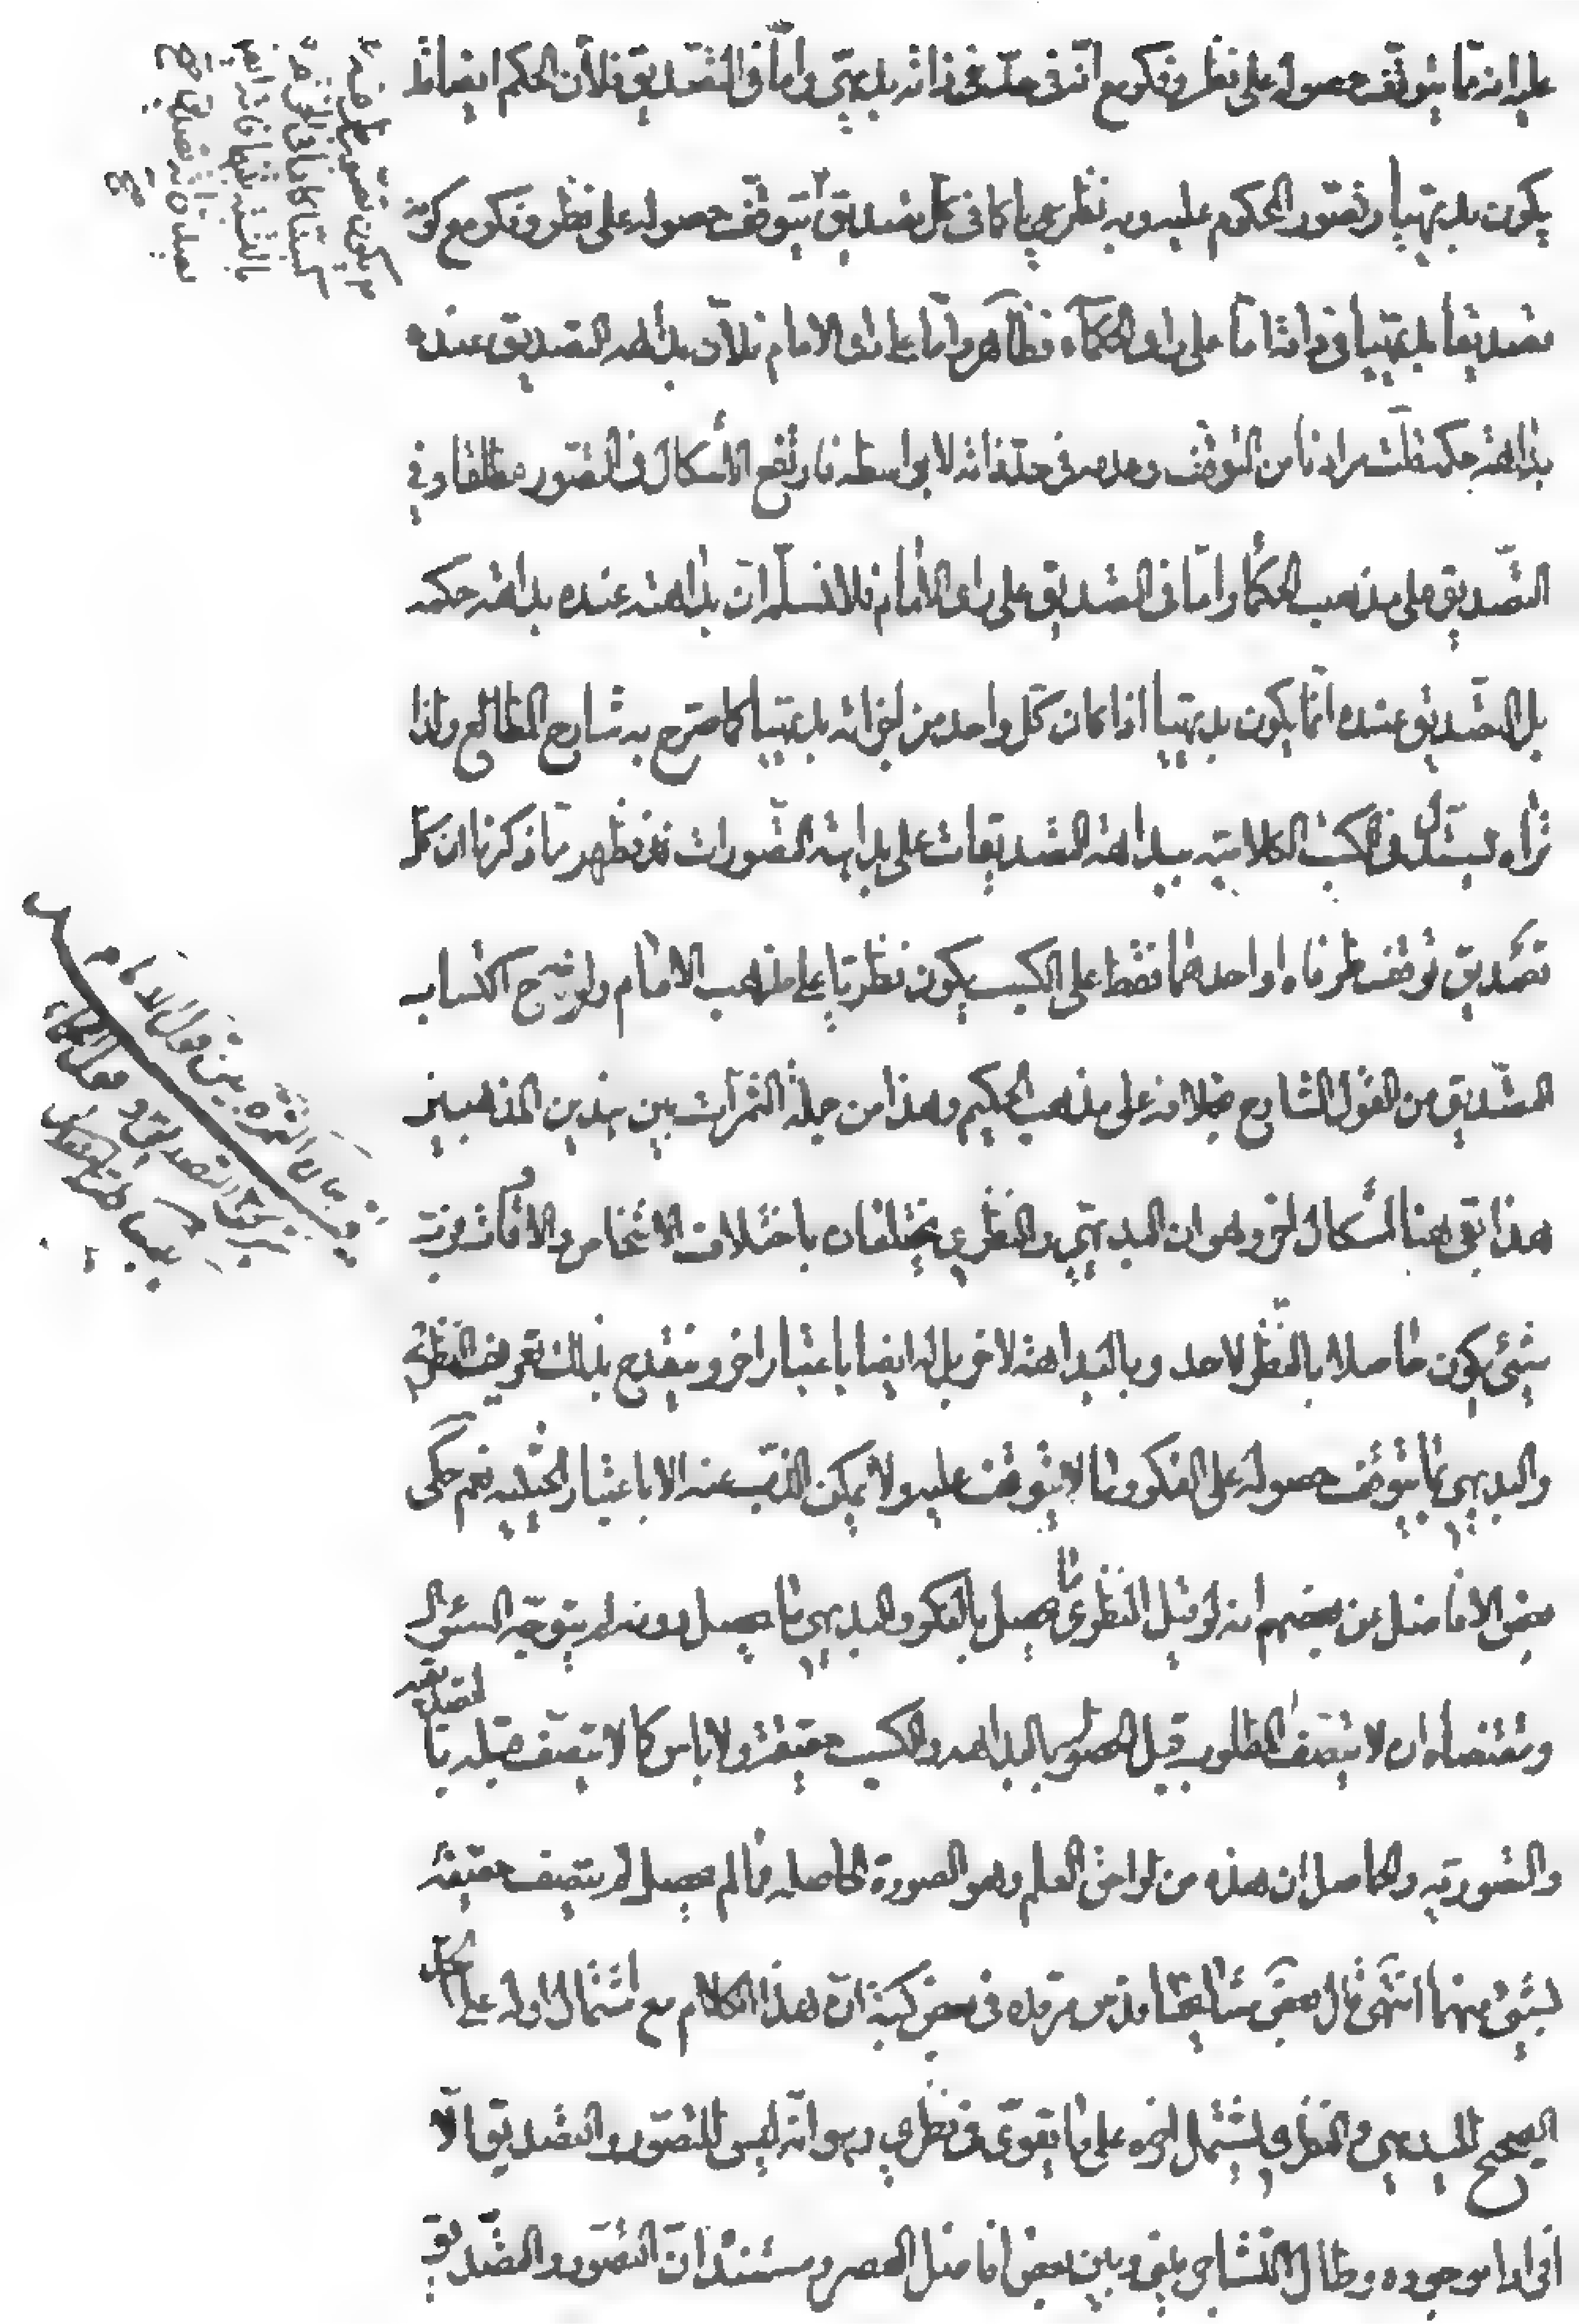 عليه انه مما يتوقف حصوله على نظر وفكر مع انه في حد ذاته بديهي واما في التصديق فلان الحكم ايضا قد
يكون بديهيا وتصور المحكوم عليه وبه نظريا كما في كل تصديق يتوقف حصوله على نظر وفكر مع كونه
تصديقا بديهيا في ذاته اما على راى الحكماء فظاهر واما على راى الامام فلان بداهة التصديق عنده
بداهة حكمه قلت مرادنا من التوقف وعدمه في حد ذاته لا بواسطه فارتفع الاشكال في التصور مطلقا وفي
التصديق على مذهب الحكماء واما في التصديق على راى الامام فلا نسلم ان بداهته عنده بداهة حكمه
بل التصديق عنده انما يكون بديهيا اذا كان كل واحد من اجزائه بديهيا كما صرح به شارح المطالع ولذا
تراه يستدل في الكتب الكلامية ببداهة التصديقات على بداهة التصورات فقد ظهر مما ذكرنا ان كل
تصديق توقف طرفاه او احدهما فقط على الكسب يكون نظريا على مذهب الامام اكتساب
التصديق من القول الشارح خلافه على مذهب الحكيم وهذا من جملة الثمرات بين هذين المذهبين
هذا بقى هنا اشكال اخر وهو ان البديهي والنظري يختلفان باختلاف الاشخاص والاوقات فرب
شيئ يكون حاصلا بالنظر لاحد وبالبداهة لاخر بل له ايضا باعتبار اخر وينقدح بذلك تعريف النظري
والبديهي بما يتوقف حصوله على الفكر وما لا يتوقف عليه ولا يمكن الذب عنه الا باعتبار الحيثيه نعم حكى
بعض الافاضل عن بعضهم انه لو قيل النظري ما يحصل بالفكر والبديهي ما يحصل بدونه لم يتوجه السؤال
ومقتضاه ان لا يتصف المطلوب قبل الحصول بالبداهه والكسب حقيقة ولا باس كما لا يتصف قبله بالتصديقيه
والتصوريه والحاصل ان هذه من لواحق العلم وهو الصورة الحاصله فما لم يحصل لم يتصف حقيقة
بشيئ منهما انتهى قال بعض مشايخنا قدس سره في بعض كتبه ان هذا الكلام مع اشتمال اوله على
الصحيح للبديهي والنظري يشتمل اخره على ما يقوى في نظري وهو انه ليس للتصور والتصديق الا
افرادا موجوده وطال التشاجر بيني وبين بعض افاضل العصر مستندا ان التصور والتصديق
بيان الثمره بين قول الامام
التصديق و قول الحكماء